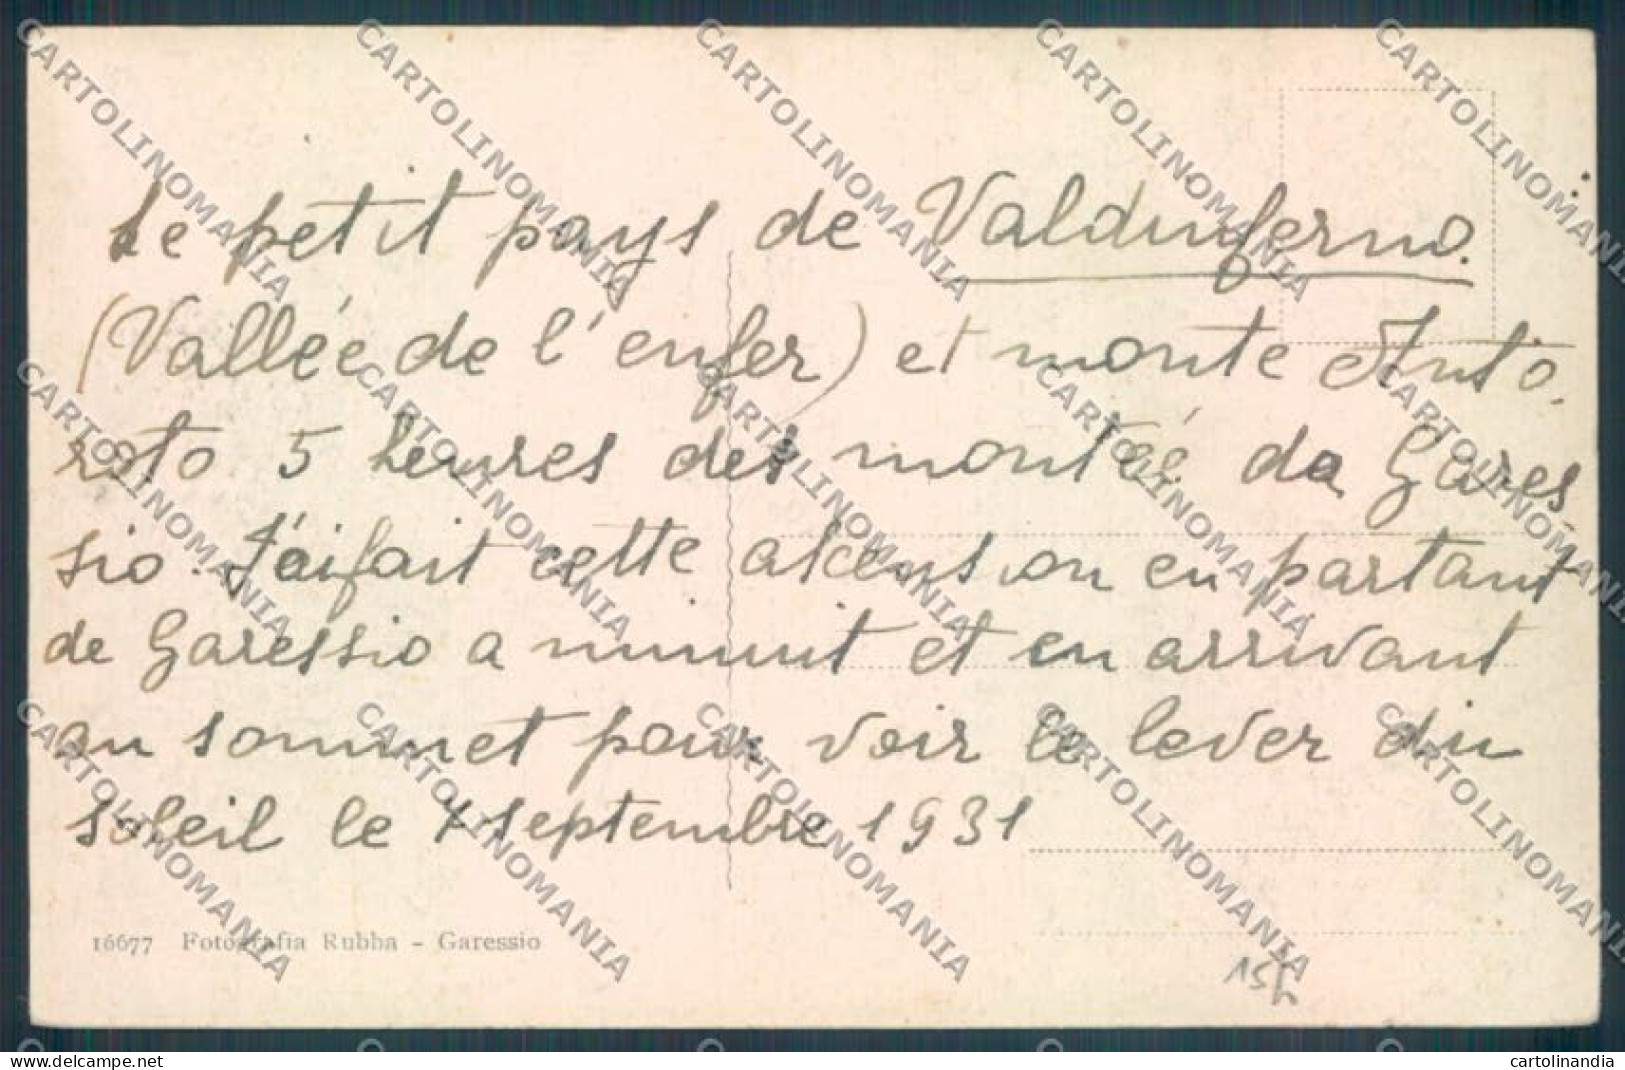 Le petit pays de Valdinferno.
(Vallée de l'enfer) et monte Anto-
roto 5 heures des montée da Gares-
sio. J'ai fait cette ascension en partant
de Garessio a minuit et en arrivant
au sommet pour voir le lever du
soleil le 7 septembre 1931
16677 Fotografia Rubba - Garessio
CARTOLINOMANIA
https://www.delcampe.net
cartolinandia